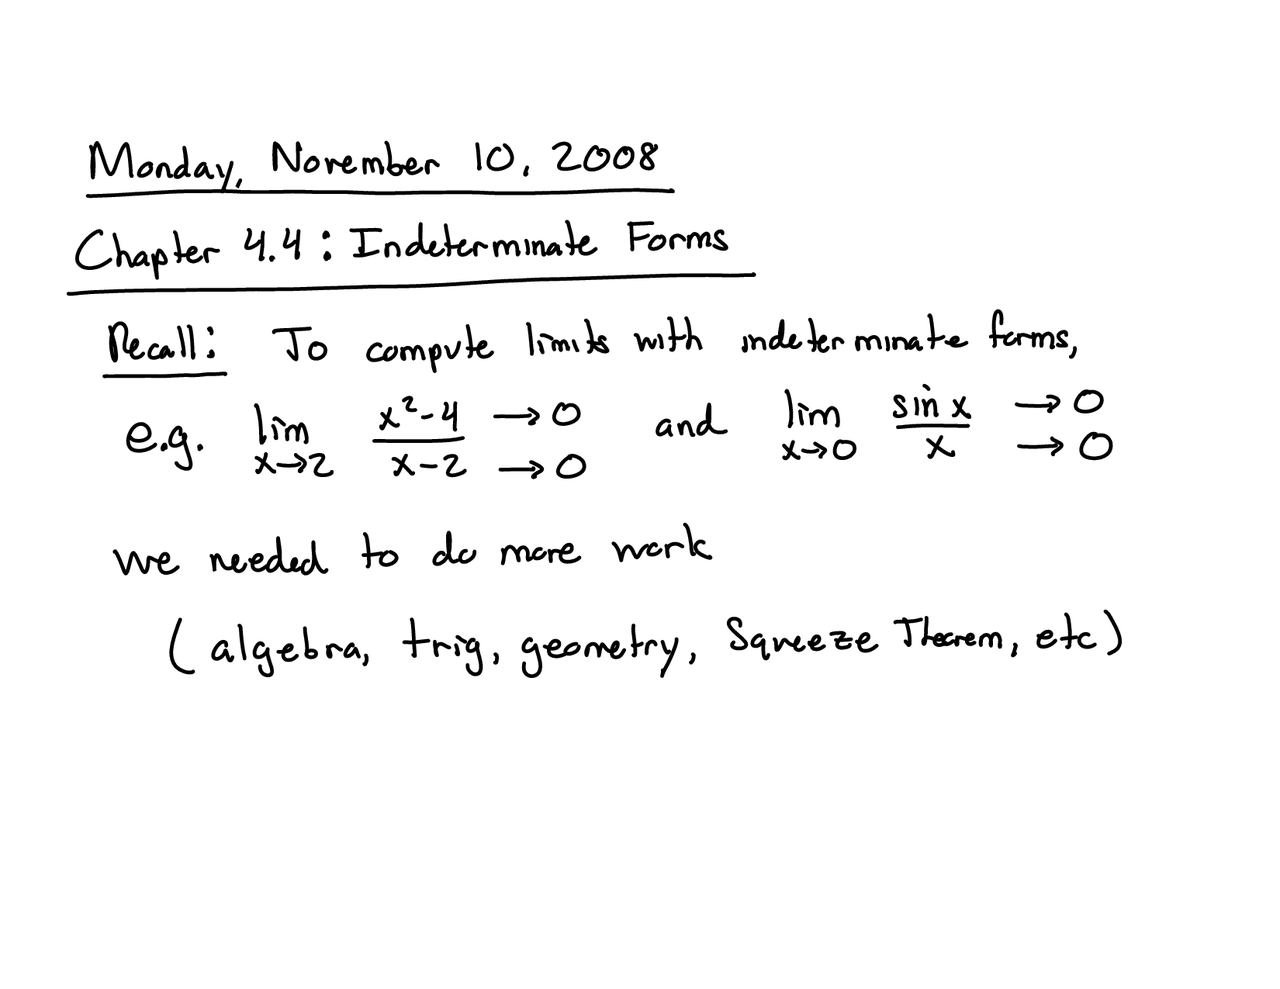 Monday, November 10, 2008
Chapter 4.4: Indeterminate Forms
Recall: To compute limits with indeterminate forms,
e.g. lim x→2 (x²-4)/(x-2) →0 →0 and lim x→0 (sin x)/x →0 →0
we needed to do more work
(algebra, trig, geometry, Squeeze Theorem, etc)